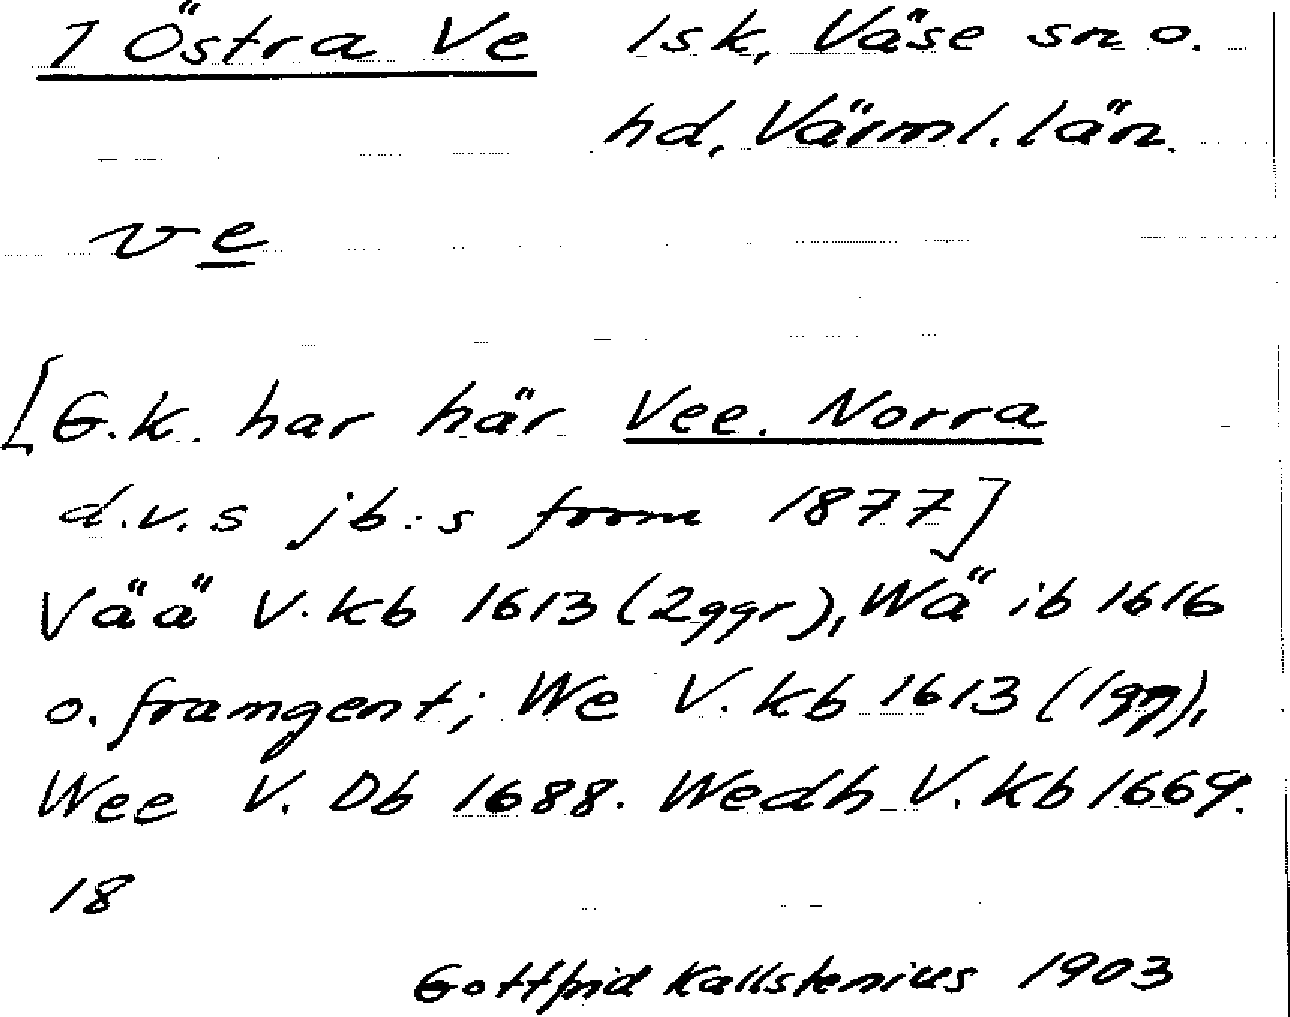 1 Östra Ve 1sk, Väse sn o.
hd, Värml. län.
ve
[G.K. har här Vee. Norra
d.v.s jb:s from 1877]
Vää V. Kb 1613 (2ggr), Wä ib 1616
o. framgent; We V. Kb 1613 (1gg),
Wee V. Db 1688. Wedh V. Kb 1669.
18
Gottfrid Kallstenius 1903